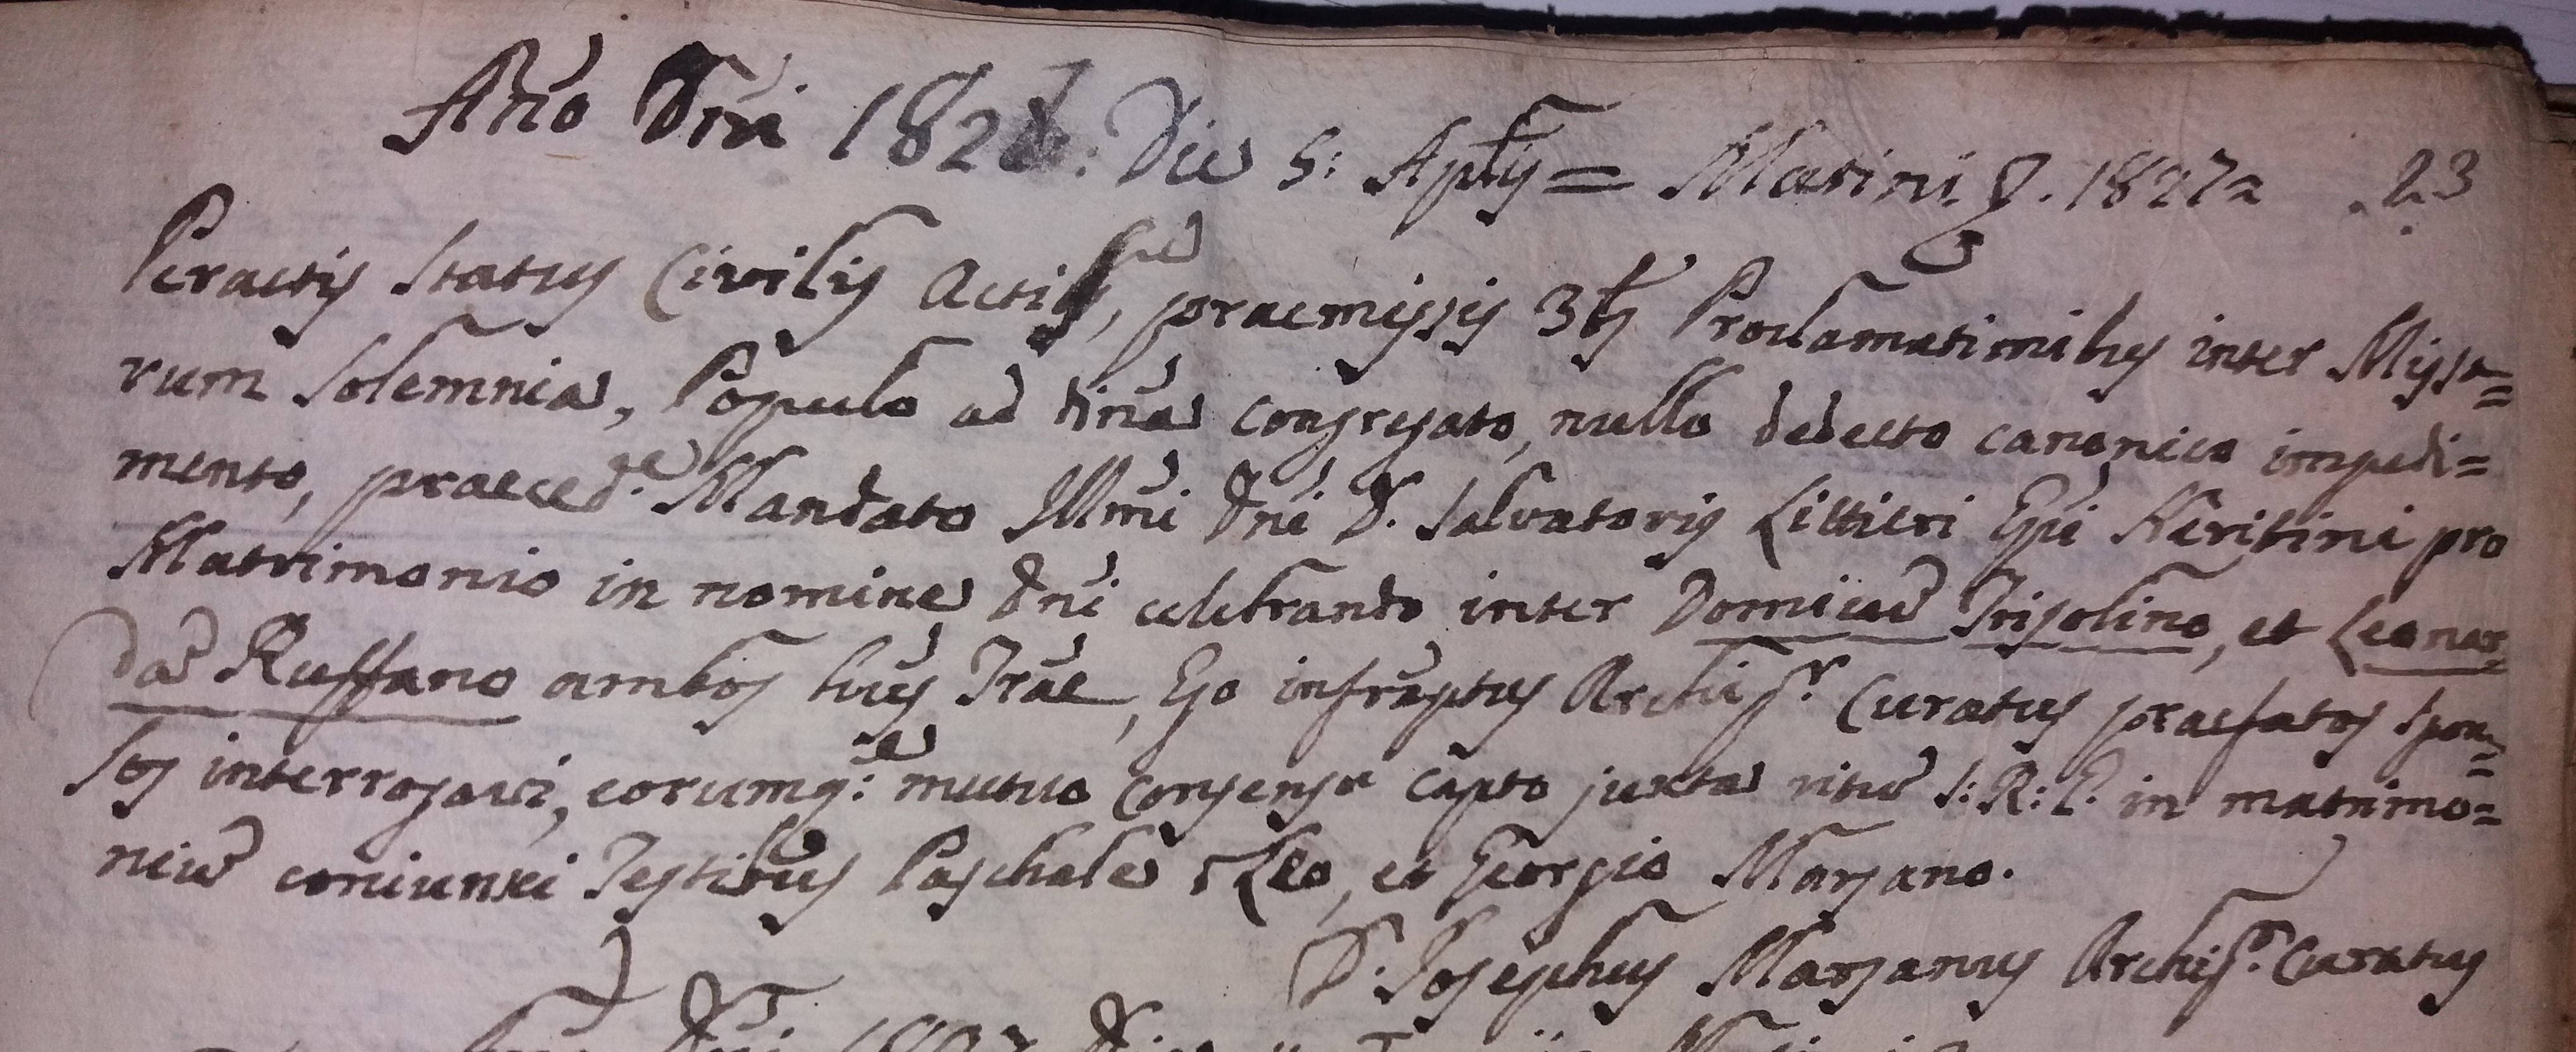 Año Dñi 1827. Die 5: Aplis = Matini 7. 1827 = 23
Peractis Status Civilis Actis, praemissis 3bs Proclamationibus inter Missa=
rum Solemnia, Populo ad divina congregato, nullo detecto canonico impedi=
mento, praeced.te Mandato Illmi Dñi D. Salvatoris Lettieri Epi Neritini pro
Matrimonio in nomine Dñi celebrando inter Domicu Trisolino, et Leonar=
da Ruffano ambos hujs Træ, Ego infrãptus Archip.r Curatus praefatos Spon=
sos interrogavi, eorumq:e mutuo consensu capto juxta ritu S: R: E. in matrimo=
niu coniunxi Testibus Paschale Leo, et Georgio Marzano.
D. Josephus Marzanus Archip.r Curatus